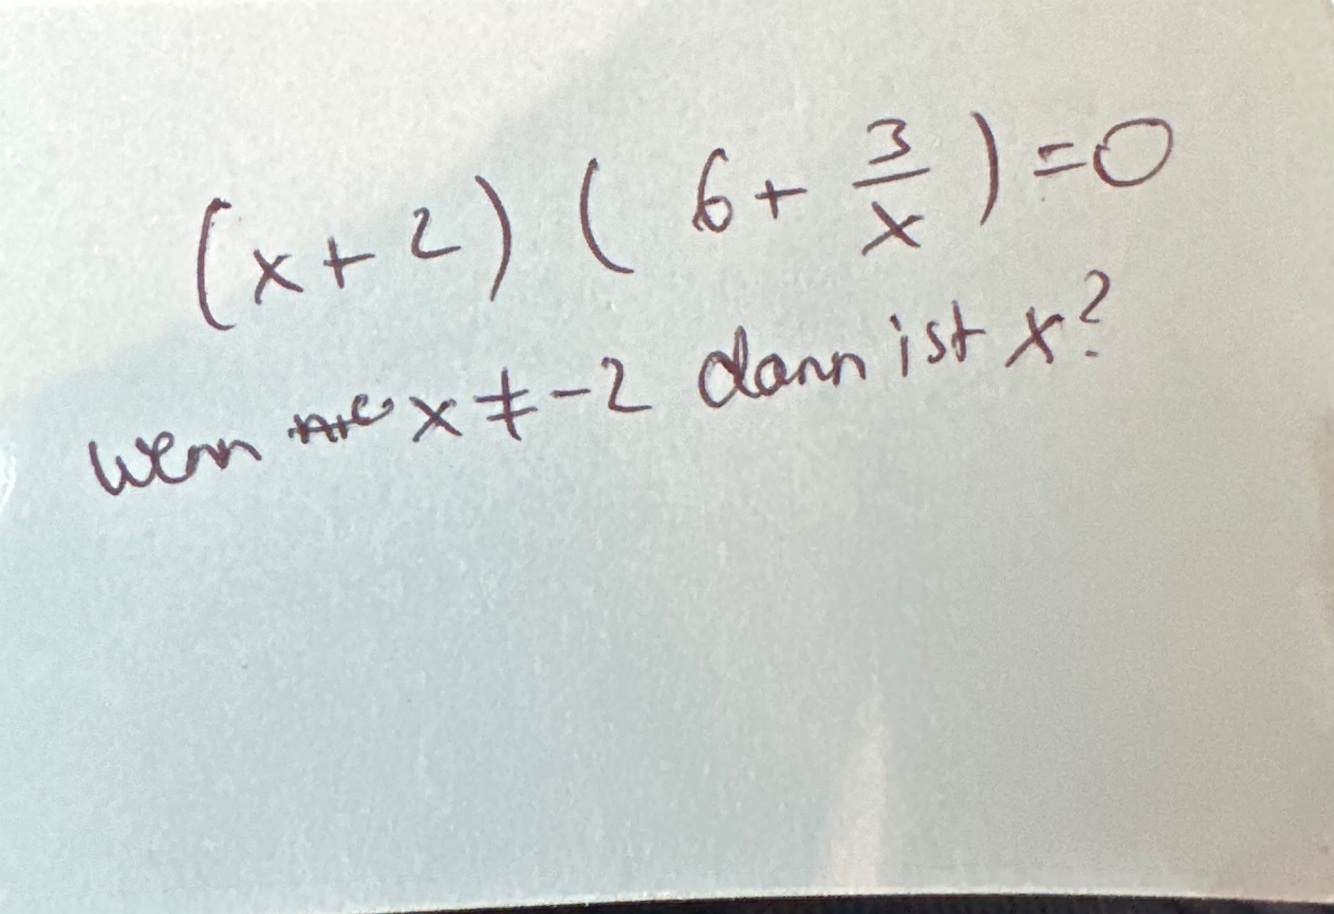 (x+2) (6+ 3/x) =0
wenn x≠-2 dann ist x?